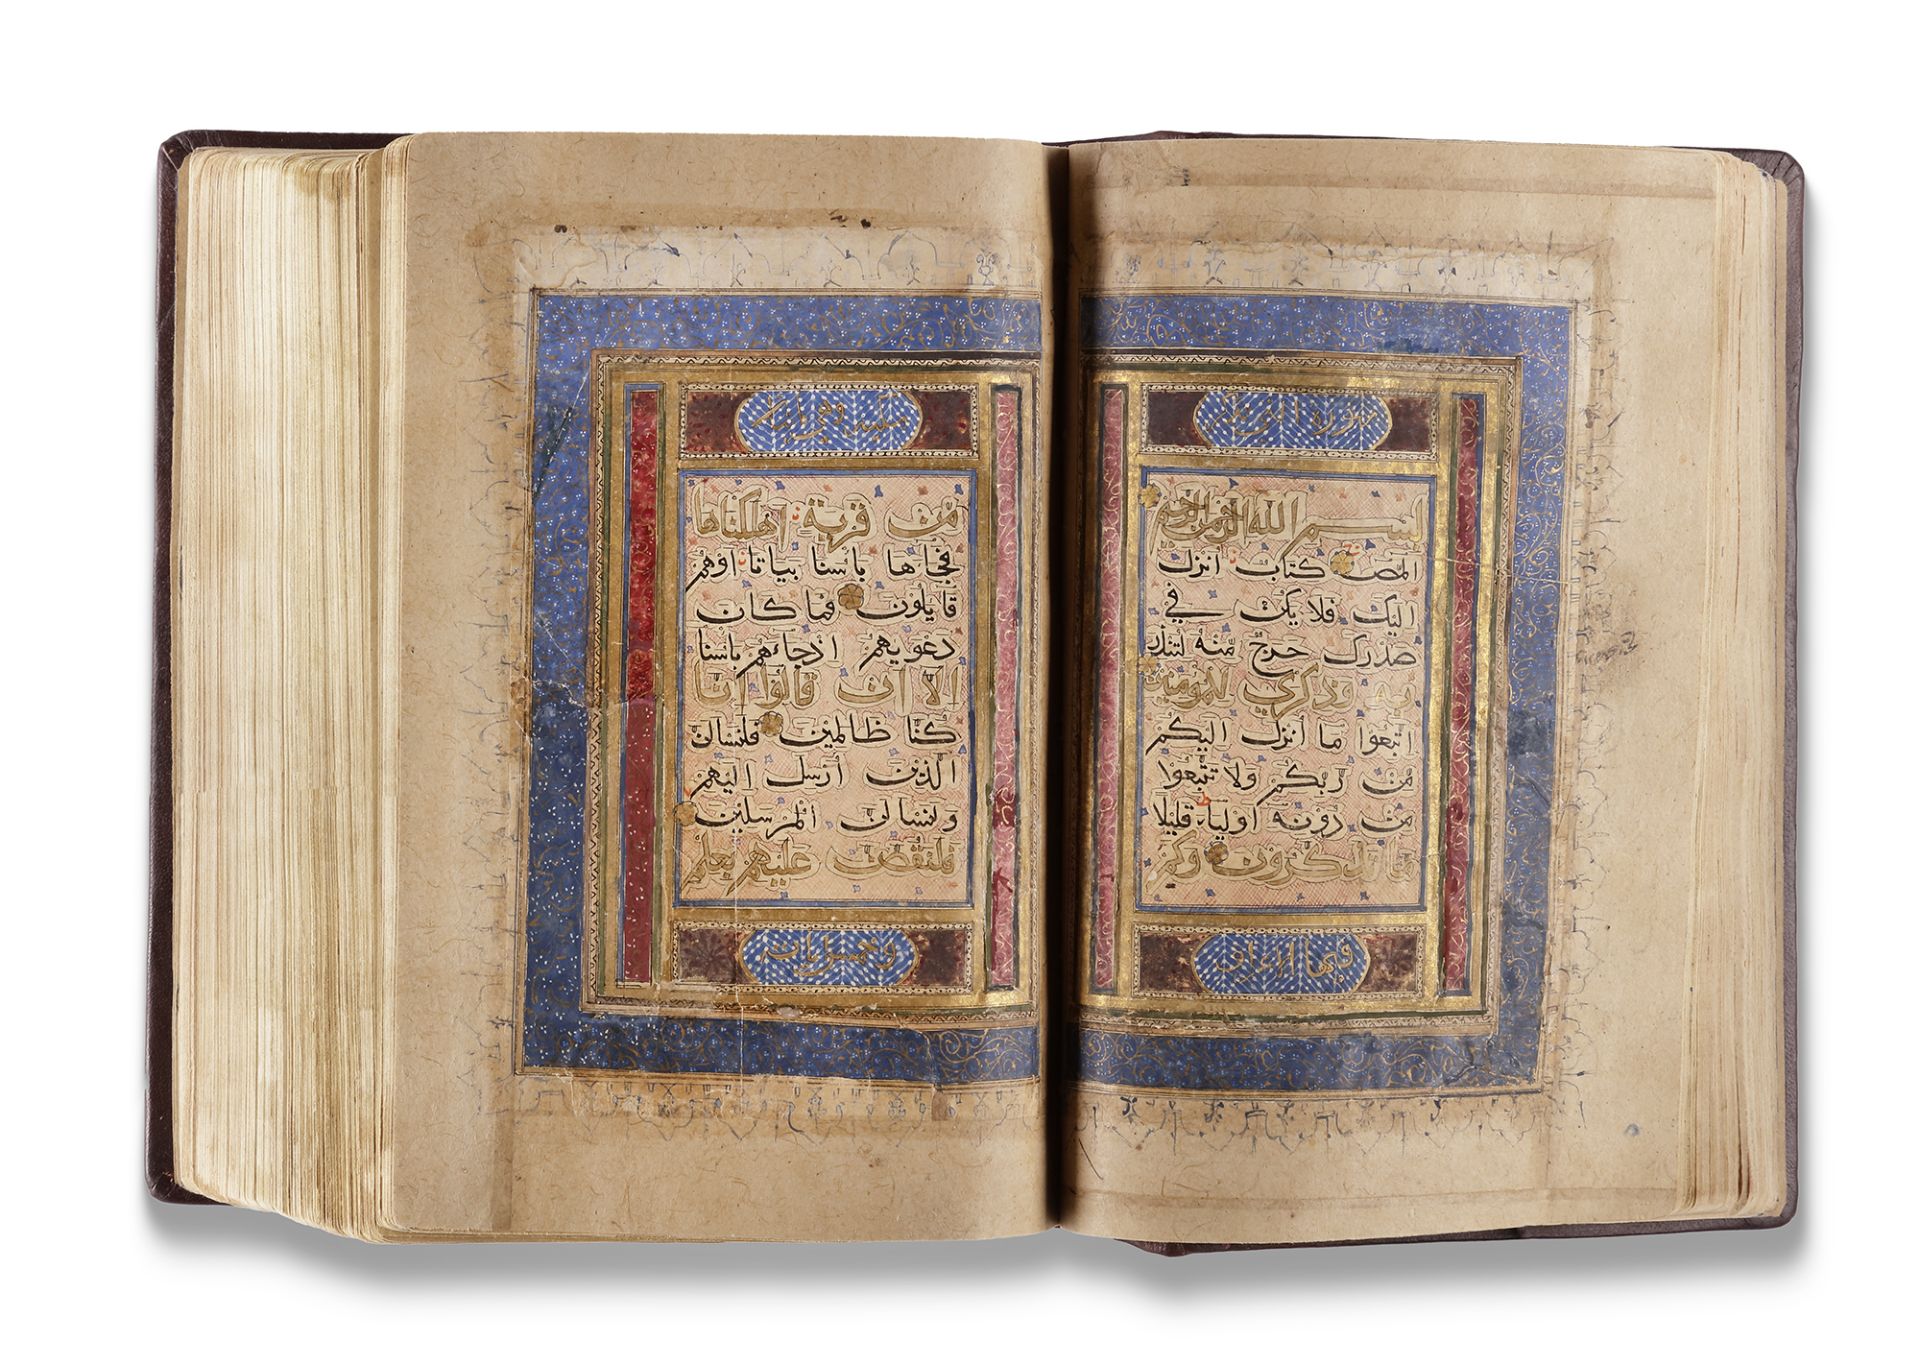 سورة التي يذكر
بسم الله الرحمن الرحيم
المص كتاب انزل
اليك فلا يكن في
صدرك حرج منه لتنذر
به وذكرى للمومنين
اتبعوا ما انزل اليكم
من ربكم ولا تتبعوا
من دونه اولياء قليلا
ما تذكرون وكم
فيها الاعراف
مكية وهي مايتا
من قرية اهلكناها
فجاءها باسنا بياتا اوهم
قايلون فما كان
دعويهم اذ جاءهم باسنا
الا ان قالوا انا
كنا ظالمين فلنسالن
الذين ارسل اليهم
ولنسالن المرسلين
فلنقصن عليهم بعلم
وخمس ايات